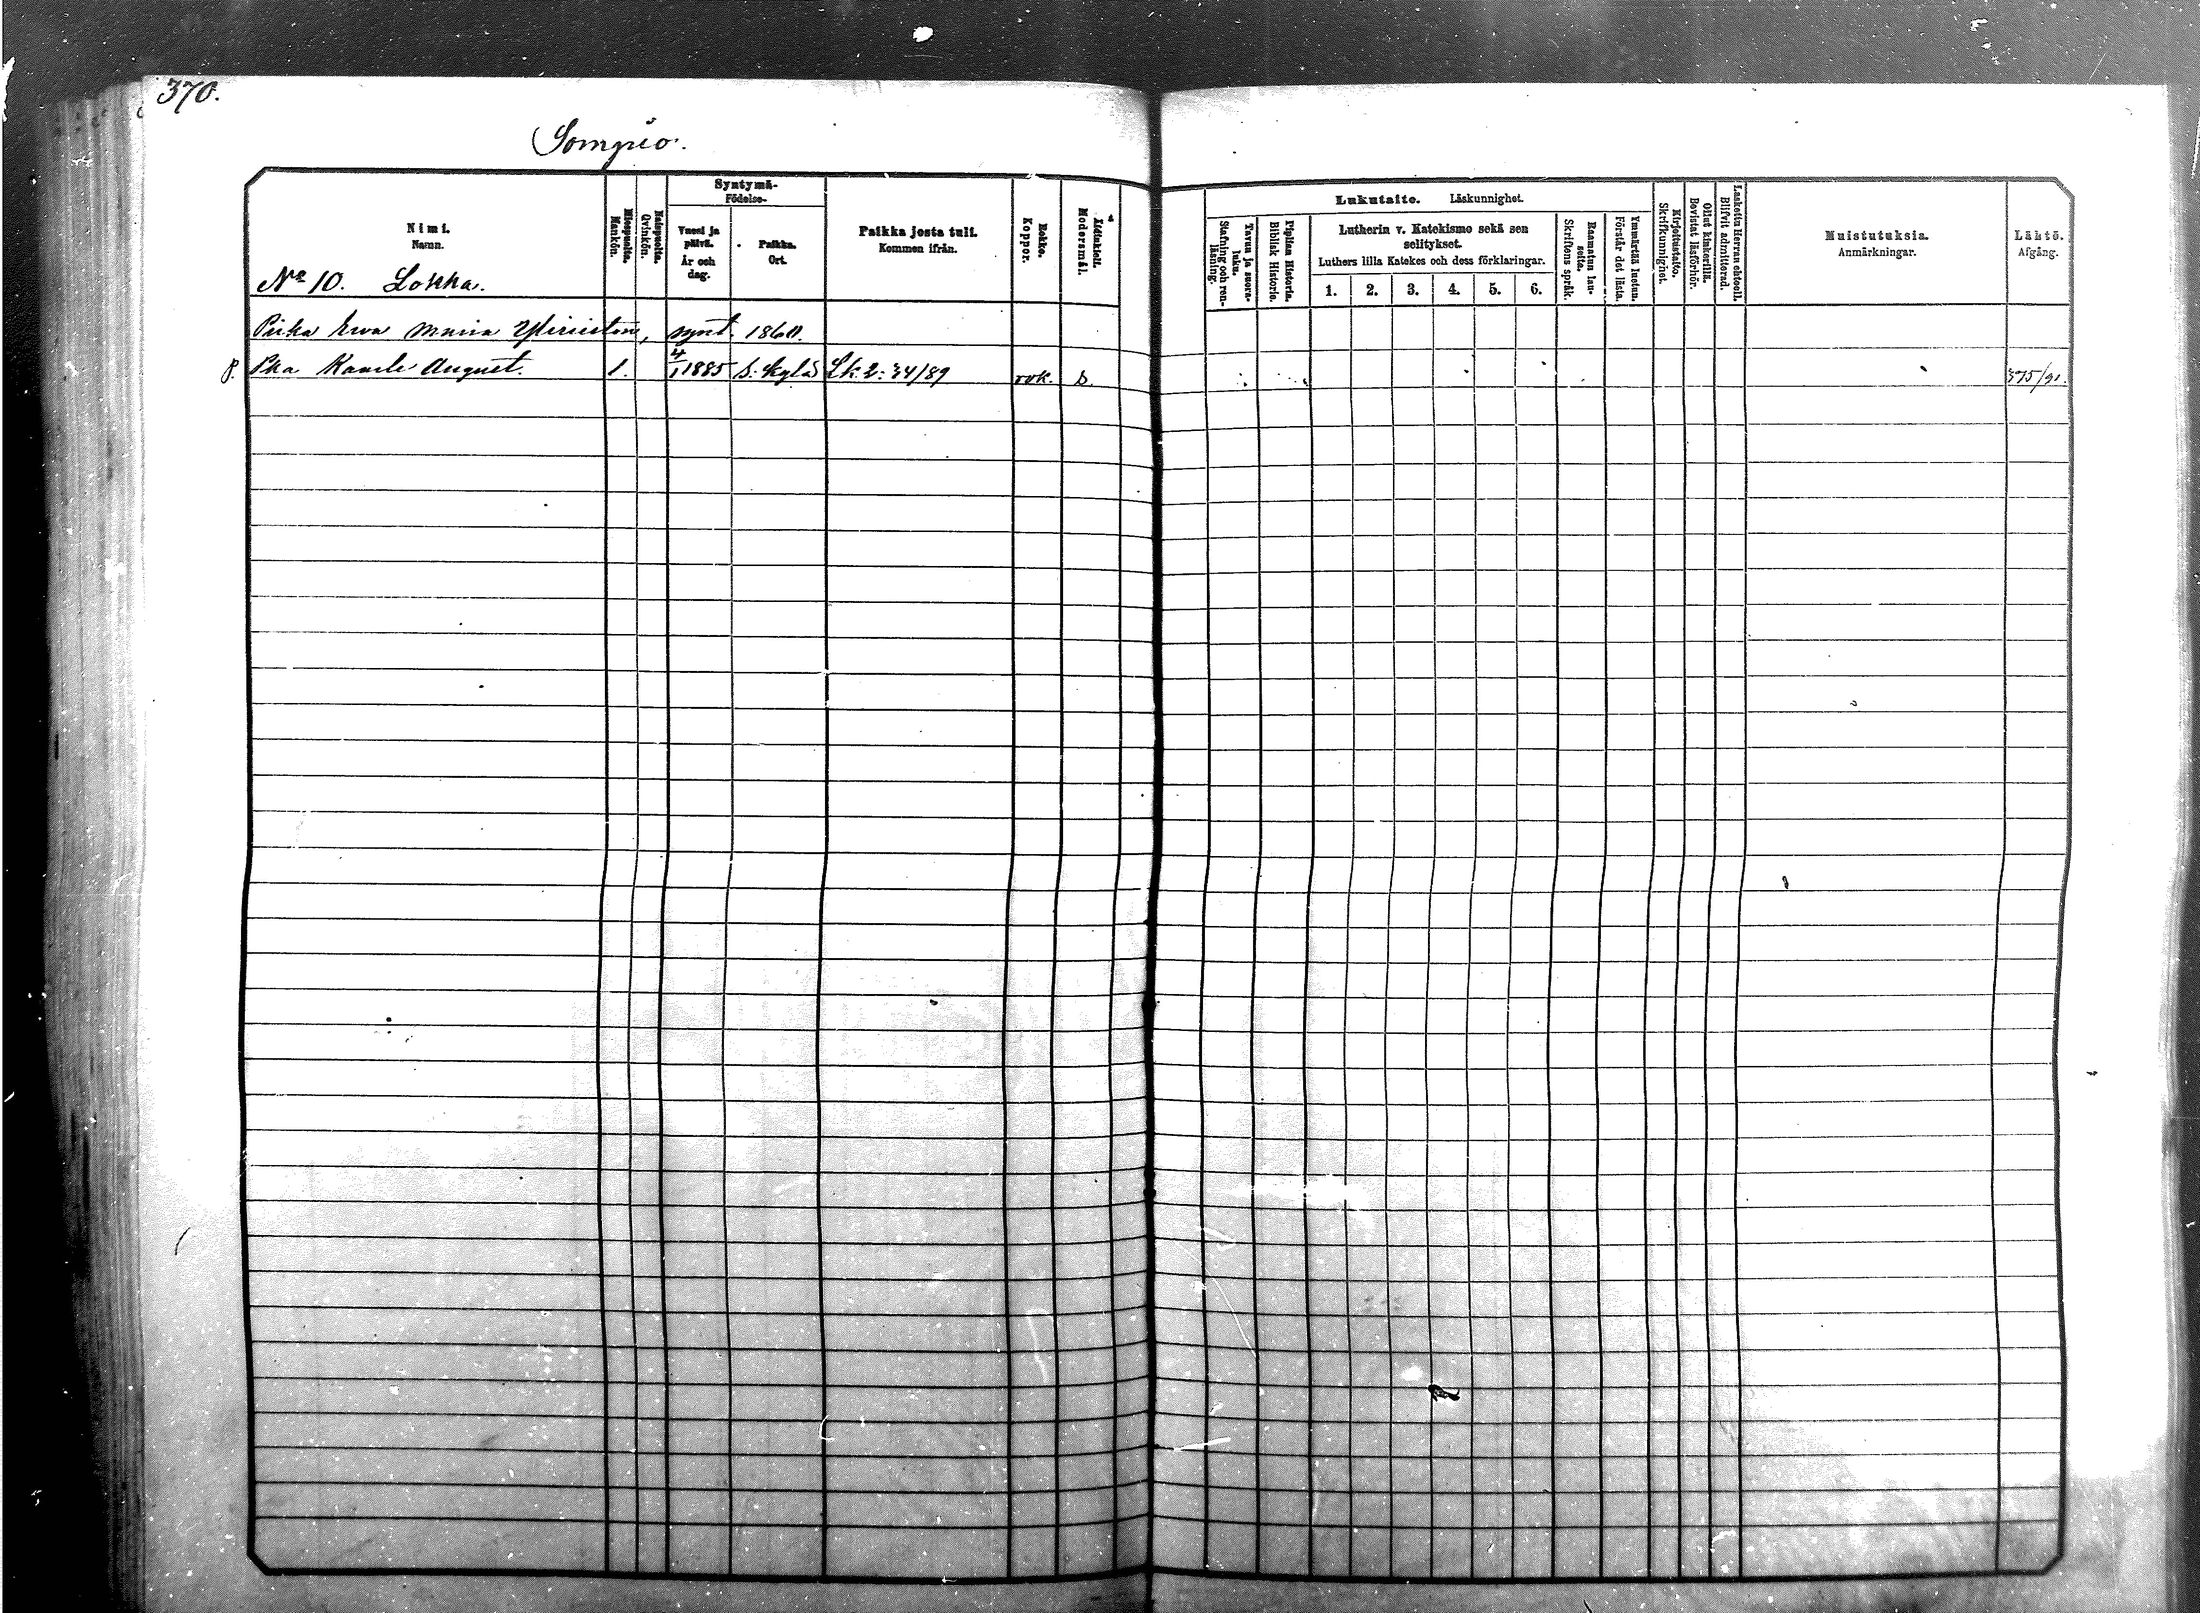 370.
Sompio.
Nimi.
Namn.
No 10. Lokka.
Miespuolia.
Mankön.
Naispuolia.
Qvinkön.
Syntymä-
Födelse-
Vuosi ja
päivä.
År och
dag.
Paikka.
Ort.
Paikka josta tuli.
Kommen ifrån.
Rokko.
Koppor.
Äidinkieli.
Modersmål.
Lukutaito. Läskunnighet.
Tavuu ja suora-
luku.
Stafning och ren-
läsning.
Piplian Historia.
Biblisk Historie.
Lutherin v. Katekismo sekä sen
selitykset.
Luthers lilla Katekes och dess förklaringar.
1. 2. 3. 4. 5. 6.
Raamatun lau-
seita.
Skriftens språk.
Ymmärtää luetun.
Förstår det lästa.
Kirjoitustaito.
Skrifkunnighet.
Ollut kinkerillä.
Bevistat läsförhör.
Laskettu Herran ehtool.
Blifvit admitterad.
Muistutuksia.
Anmärkningar.
Lähtö.
Afgång.
Piika Ewa Maria synt. 1860.
P. Pka Kaarle August. 1. 4/1 1885 S. kylä Lk. 2: 34/89 rok. s. 375/91.